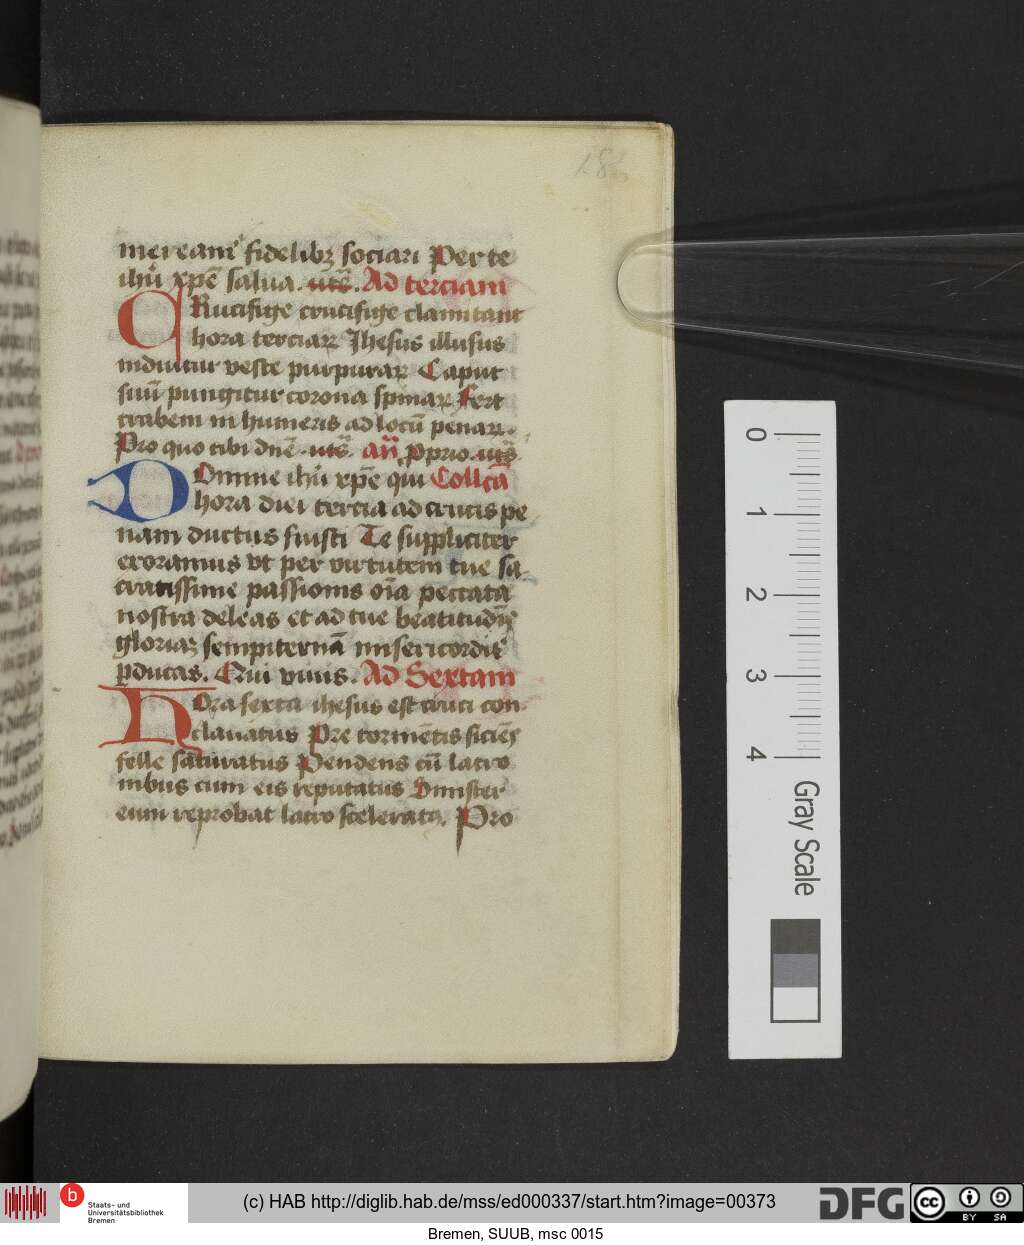 mereamr fidelibꝫ sociari Per te
ihū xpē salua. utē. Ad terciam
CRucifige crucifige clamitant
hora terciaꝝ Ihesus illusus
induitur veste purpuraꝝ Caput
suū pungitur corona spinaꝝ Fert
crabem in humeris ad locū penaꝝ.
Pro quo tibi dnē. utē aū Pprio. utē
DOmine ihū xpē qui Collcā
hora diei tercia ad crucis pe
nam ductus fuisti Te suppliciter
exoramus vt per virtutem tue sa
cratissime passionis oīa peccata
nostra deleas et ad tue beatitudīs
gloriaꝫ sempiternā misericordit᷑
pducas. Qui viuis. Ad Sextam
HOra sexta ihesus est cruci con
clauatus Pre tormētis siciēs
felle saturatus Pendens cū latro
nibus cum eis reputatus Sinister
eum reprobat latro sceleratꝰ. Pro
0
1
2
3
4
Gray Scale
b
Staats- und
Universitätsbibliothek
Bremen
(c) HAB http://diglib.hab.de/mss/ed000337/start.htm?image=00373
DFG
cc
BY SA
Bremen, SUUB, msc 0015